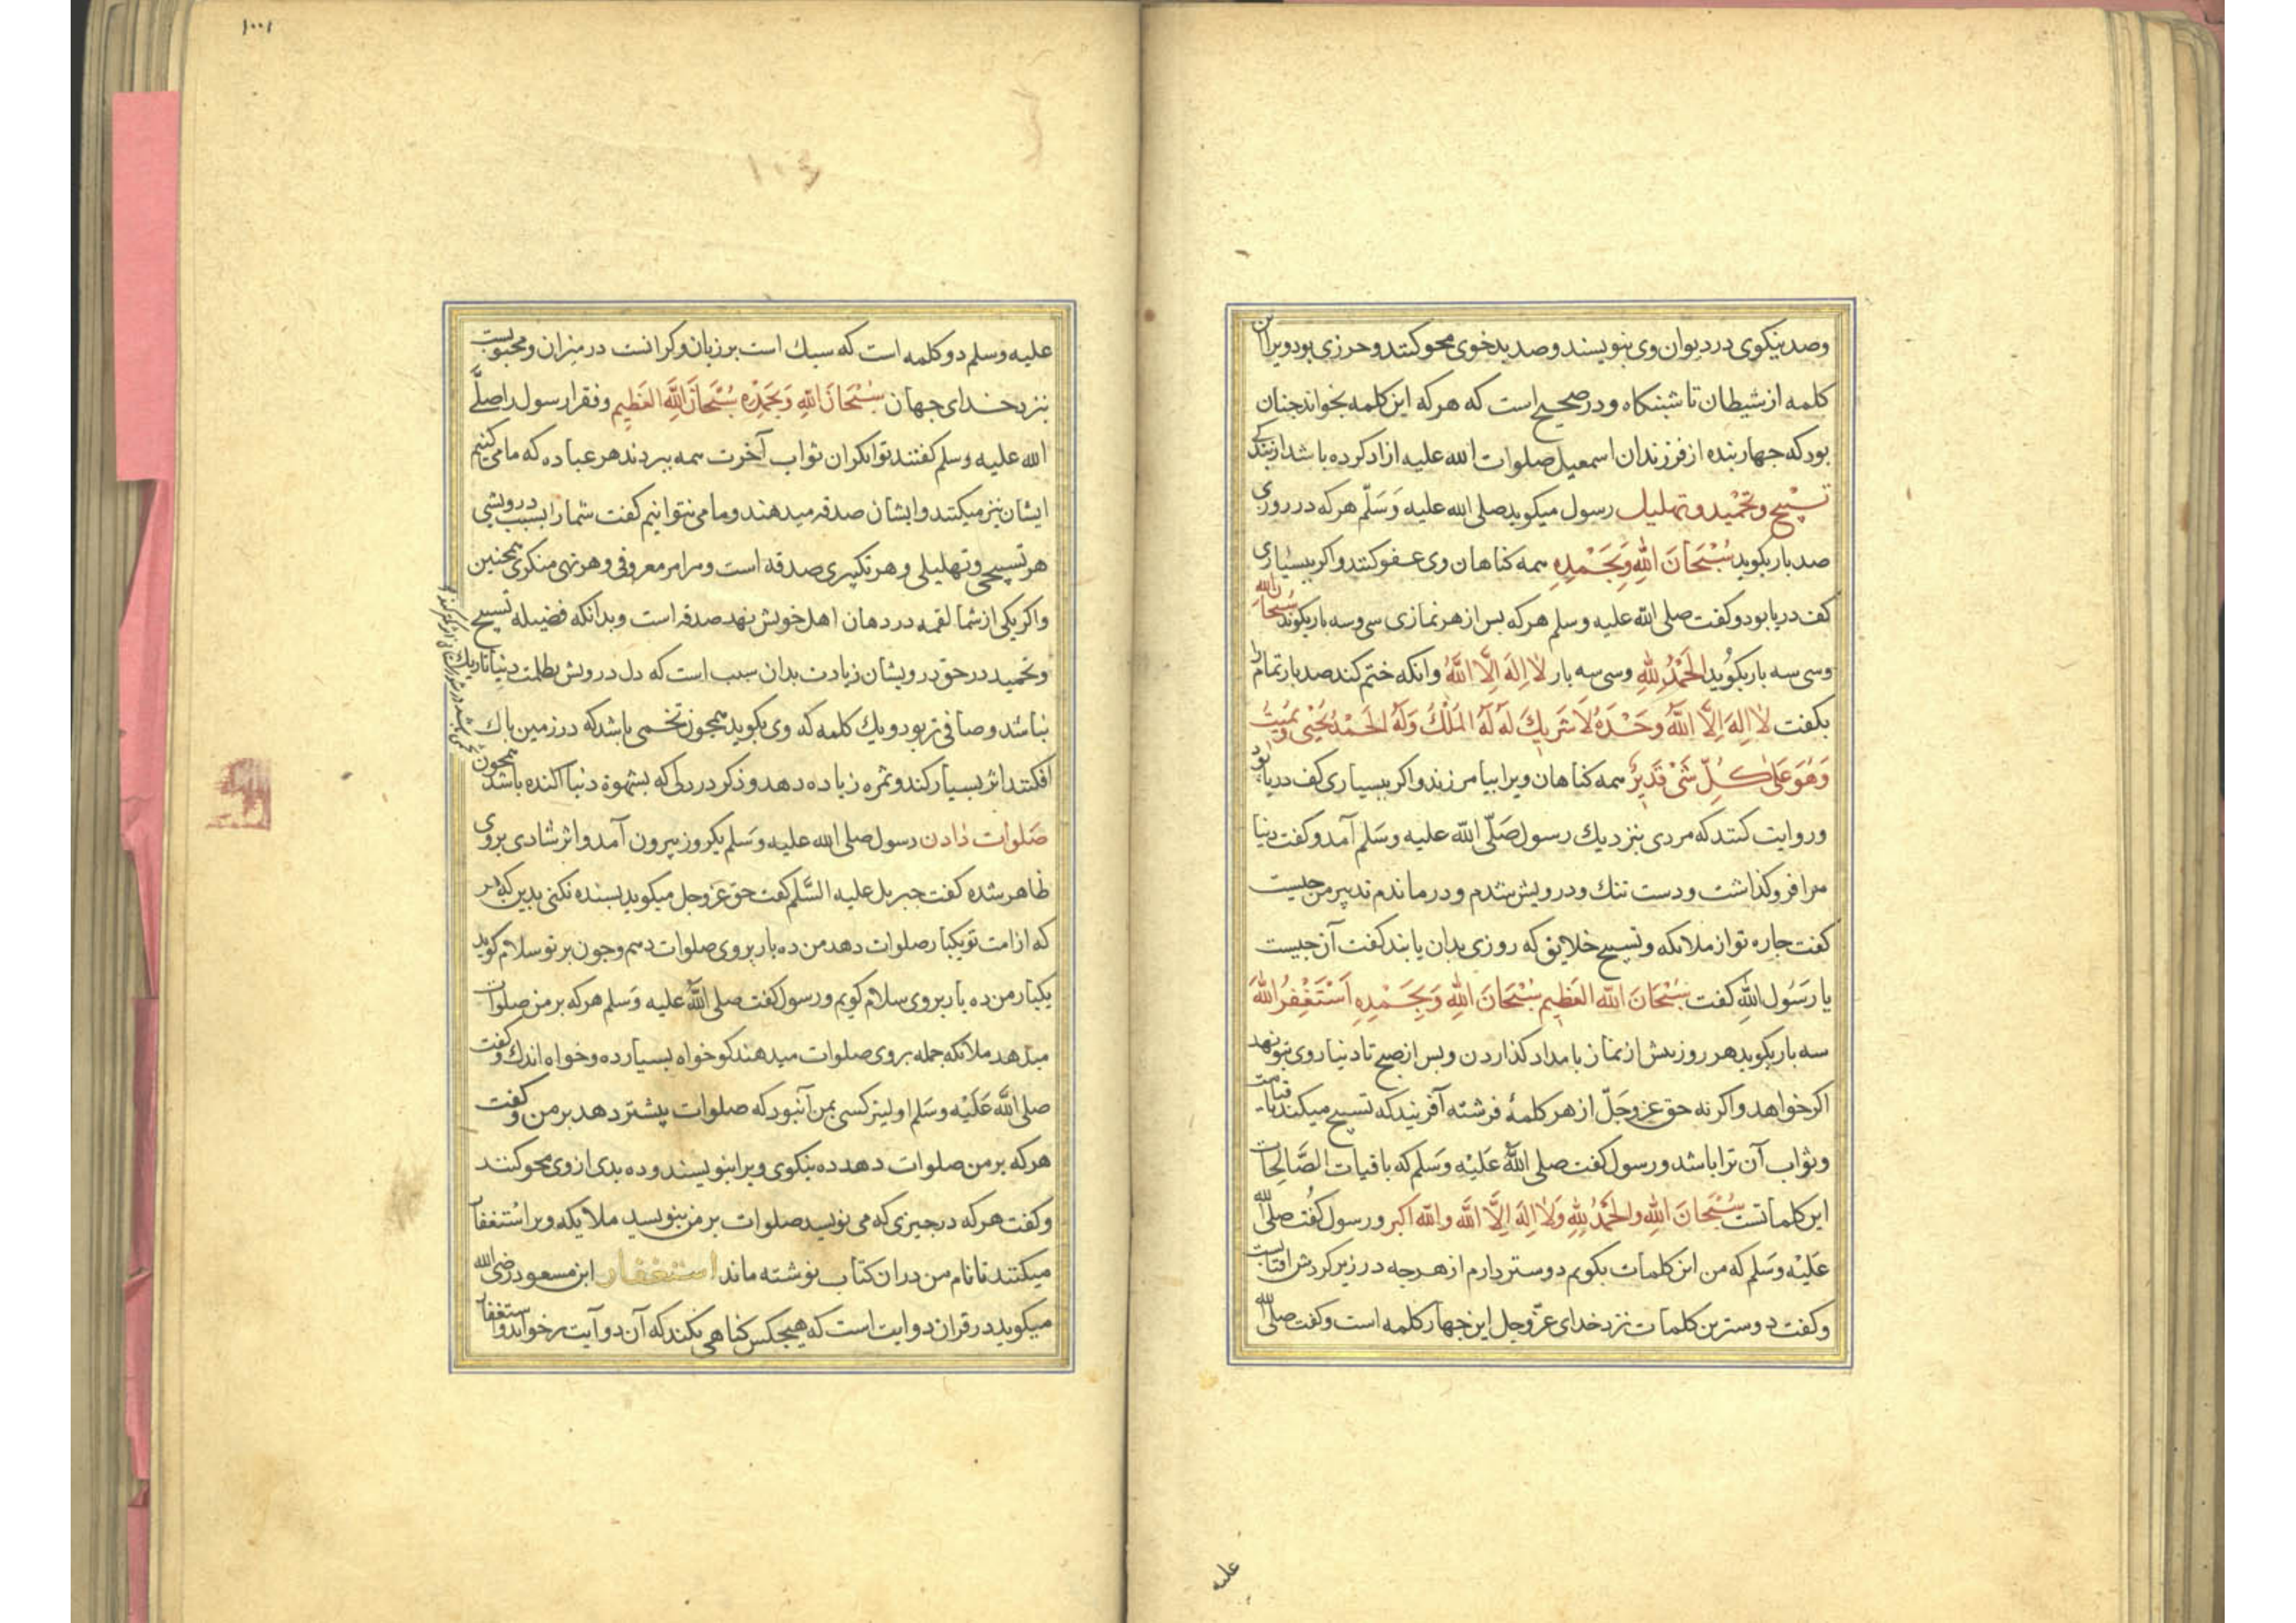 وصد نیکوی در دیوان وی بنویسند وصد بدخوی محو کنند وحرزی بود ویرا این
کلمه از شیطان تا شبنکاه ودر صحیح است که هرکه این کلمه بخواند جنان
بود که جهار بنده از فرزندان اسمعیل صلوات الله علیه ازاد کرده باشد از بندکی
تسبیح وتحمید وتهلیل رسول میکوید صلی الله علیه وَسَلّم هرکه در روزی
صد بار بکوید سُبْحَانَ اللهِ وَبِحَمْدِهِ همه کناهان وی عفو کنند واکر ببسیاری
کف دریا بود وکفت صلی الله علیه وسلم هرکه بس از هر نمازی سی وسه بار بکوید سُبحانَ الله
وسی سه بار بکُوید الحَمْدُ لِلّٰهِ وسی سه بار لَا اِلهَ اِلَّا اللهُ وانکه ختم کند صد بار تمام را
بکفت لَا اِلهَ اِلَّا اللهُ وَحْدَهُ لَا شَرِیكَ لَهُ لَهُ المُلْكُ وَلَهُ الحَمْدُ یُحْیِی وَیُمیتُ
وَهُوَ عَلیٰ کُلِّ شَیْ قَدِیرٌ همه کناهان ویرا بیامرزند واکر ببسیاری کف دریا بود
وروایت کنند که مردی بنزدیك رسول صَلّی الله علیه وسَلم آمد وکفت دنیا
مرا فرو کذاشت ودست تنك ودرویش شدم ودرماندم تدبیر من جیست
کفت جاره تو از ملائکه وتسبیح خلایق که روزی بدان یابند کفت آن جیست
یا رَسُول اللهِ کفت سُبْحَانَ الله العَظِیم سُبْحَانَ اللهِ وَبِحَمْدِهِ اَسْتَغْفِرُ اللهَ
سه بار بکوید هر روز بیش از نماز بامداد کذاردن وبس از صبح تا دنیا روی بتو نهد
اکر خواهد واکر نه حق عزوجَلّ از هر کلمهٔ فرشته آفریند که تسبیح میکند تا قیامت
وثواب آن ترا باشد ورسول کفت صلی اللهُ عَلَیْهِ وسَلم که باقیات الصَّالِحات
این کلماتست سُبْحَانَ اللهِ والحَمْدُ لِلّٰهِ وَلَا اِلهَ اِلَّا الله والله اکبر ورسول کفت صلی الله
عَلَیْهِ وسَلم که من این کلمات بکویم دوستر دارم از هرجه در زیر کردش افتابست
وکفت دوسترین کلمات نزد خدای عزّوجل این جهار کلمه است وکفت صلی الله
علیه
١٠٠١
١٠٤
علیه وسلم دو کلمه است که سبك است بر زبان وکرانست در میزان ومحبوبست
بنزد خدای جهان سُبْحَانَ اللهِ وَبِحَمْدِهِ سُبْحَانَ اللهِ العَظِیمِ وفقرا رسول را صلَّی
الله علیه وسلم کفتند توانکران ثواب آخرت همه ببردند هر عباده که ما می کنیم
ایشان نیز میکنند وایشان صدقه میدهند وما می نتوانیم کفت شما را بسبب درویشی
هر تسبیحی وتهلیلی وهر تکبیری صدقه است ومر امر معروفی وهر نهی منکری همجنین
واکر یکی از شما لقمه در دهان اهل خویش نهد صدقه است وبدانکه فضیله تسبیح
وتحمید در حق درویشان زیادت بدان سبب است که دل درویش بظلمت دنیا تاریك
نباشد وصافی تر بود ویك کلمه که وی بکوید همجون تخمی باشد که در زمین باك
افکنند اثر بسیار کند وثمره زیاده دهد وذکر در دلی که بشهوة دنیا اکنده باشد همجون
تخمی باشد در شورستانی اثر کم کند
صَلوات دادن رسول صلی الله علیه وسَلم یکروز بیرون آمد واثر شادی بر وی
ظاهر شده کفت جبریل علیه السَّلم کفت حق عزوجل میکوید بسنده نکنی بدین که هر
که از امت تو یکبار صلوات دهد من ده بار بر وی صلوات دهم وجون بر تو سلام کوید
یکبار من ده بار بر وی سلام کویم ورسول کفت صلی اللهُ علیه وَسلم هرکه بر من صلوات
میدهد ملائکه جمله بر وی صلوات میدهند کو خواه بسیار ده وخواه اندك وکفت
صلی الله عَلَیْهِ وسَلم اولیتر کسی بمن آنبود که صلوات بیشتر دهد بر من وکفت
هرکه بر من صلوات دهد ده نیکوی ویرا بنویسند وده بدی از وی محو کنند
وکفت هرکه در جیزی که می نویسد صلوات بر من بنویسد ملایکه ویرا استغفار
میکنند تا نام من دران کتاب نوشته ماند استغفار ابن مسعود رضی الله
میکوید در قران دو ایت است که هیجکس کناهی نکند که آن دو آیت برخواند واستغفار